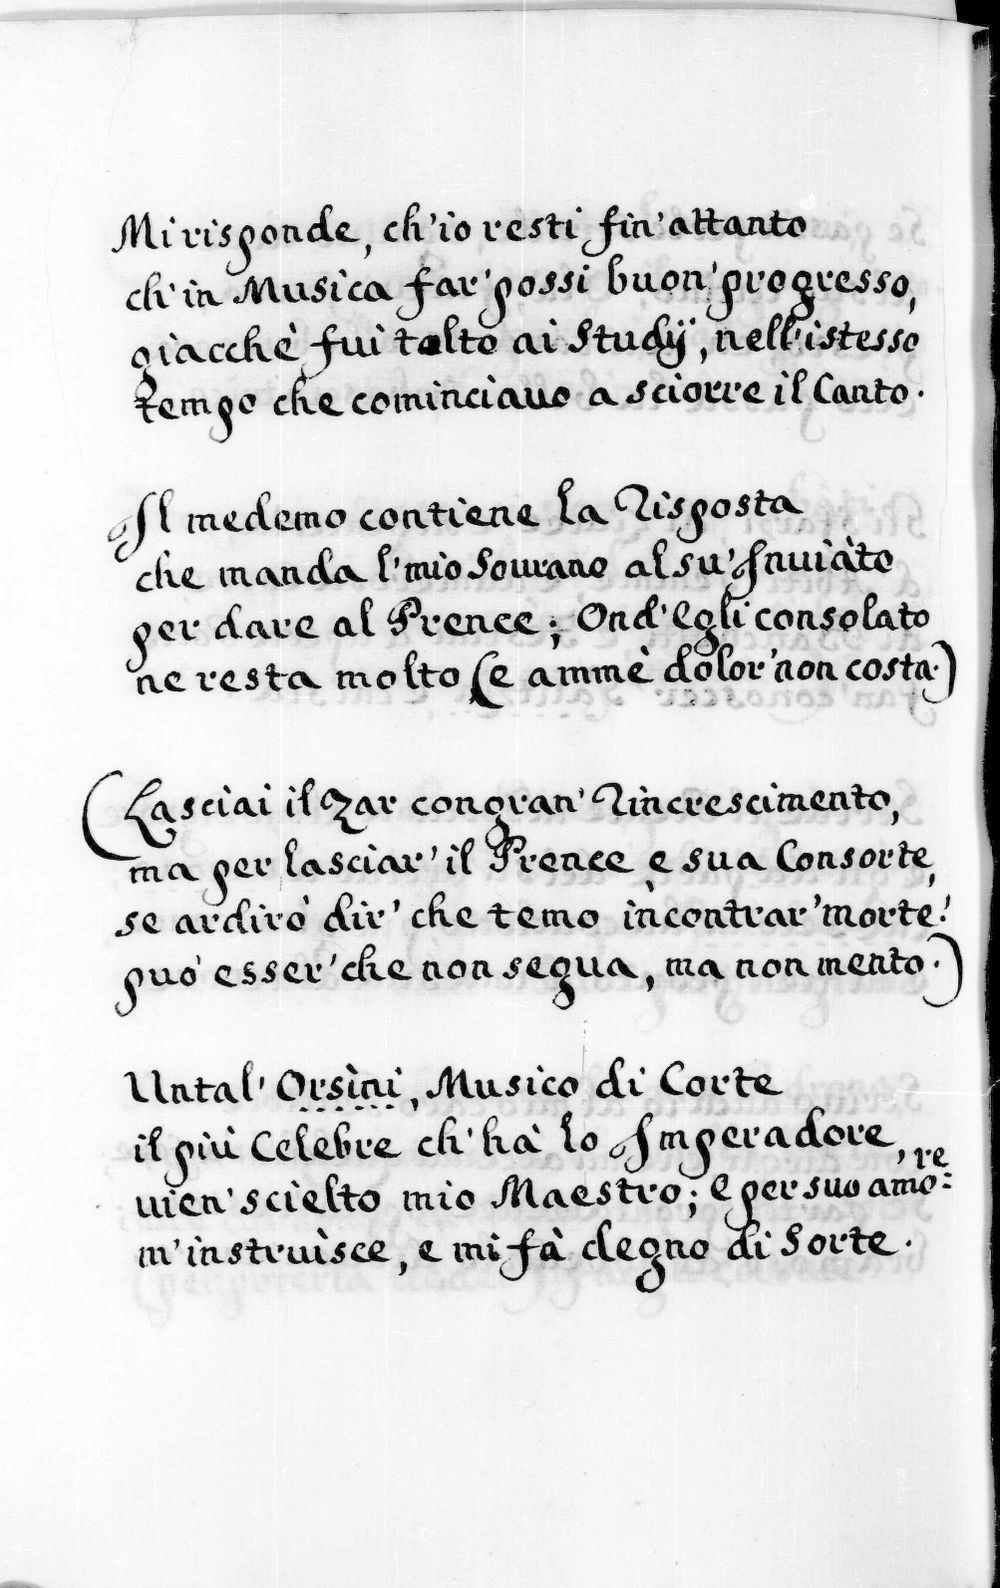 Mi risponde, ch'io resti fin'attanto
ch'in Musica far'possi buon'progresso,
giacchè fui tolto ai Studÿ, nell'istesso
tempo che cominciauo a sciorre il Canto.
Il medemo contiene la Risposta
che manda l'mio Sourano al su'Inuiàto
per dare al Prence; Ond'Egli consolato
ne resta molto (e ammè dolor'non costa.)
(Lasciai il Zar con gran'Rincrescimento,
ma per lasciar'il Prence e sua Consorte,
se ardirò dir'che temo incontrar'morte!
può esser'che non segua, ma non mento.)
Un tal'Orsini, Musico di Corte
il più Celebre ch'hà lo Imperadore,
uien'scielto mio Maestro; e per suo amo:re
m'instruisce, e mi fà degno di Sorte.